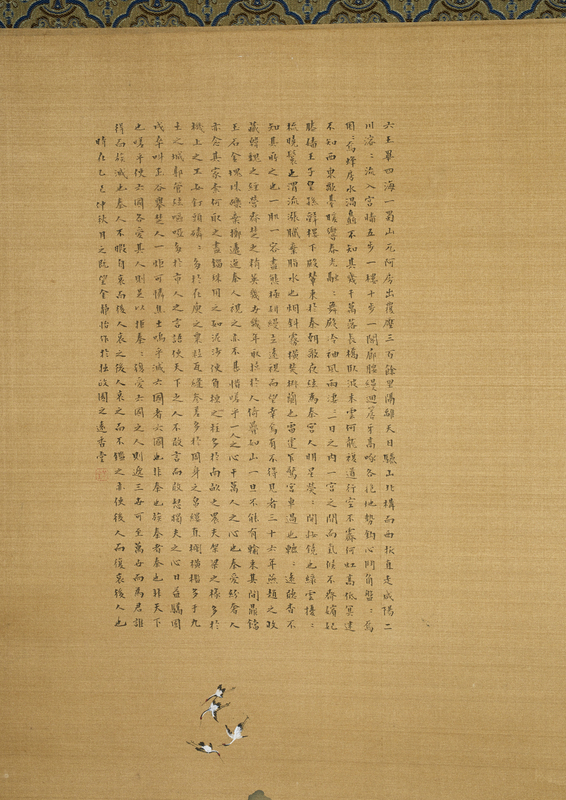 六王畢四海一蜀山兀阿房出覆壓三百餘里隔離天日驪山北構而西折直走咸陽二
川溶〻流入宮墻五步一樓十步一閣廊腰縵迴簷牙高啄各抱地勢鉤心鬥角盤〻焉
囷〻焉蜂房水渦矗不知其幾千萬落長橋臥波未雲何龍複道行空不霽何虹高低冥迷
不知西東歌臺暖響春光融〻舞殿冷袖風雨淒〻一日之內一宮之間而氣候不齊嬪妃
媵嬙王子皇孫辭樓下殿輦來於秦朝歌夜絃為秦宮人明星熒〻開妝鏡也綠雲擾〻
梳曉鬟也渭流漲膩棄脂水也烟斜霧橫焚椒蘭也雷霆乍驚宮車過也轆〻遠聽杳不
知其所之也一肌一容盡態極妍縵立遠視而望幸焉有不得見者三十六年燕趙之收
藏韓魏之經營齊楚之精英幾世幾年取掠於人倚疊如山一旦不能有輸來其間鼎鐺
玉石金塊珠礫棄擲邐迤秦人視之亦不甚惜嗟乎一人之心千萬人之心也秦愛紛奢人
亦念其家奈何取之盡錙銖用之如泥沙使負棟之柱多於南畝之農夫架梁之椽多於
機上之工女釘頭磷〻多於在庾之粟粒瓦縫參差多於周身之帛縷直欄橫檻多于九
土之城郭管絃嘔啞多於市人之言語使天下之人不敢言而敢怒獨夫之心日益驕固
戍卒叫函谷舉楚人一炬可憐焦土嗚乎滅六國者六國也非秦也族秦者秦也非天下
也嗟乎使六國各愛其人則足以拒秦〻復愛六國之人則遞三世可至萬世而為君誰
得而族滅也秦人不暇自哀而後人哀之後人哀之而不鑑之亦使後人而復哀後人也
時在乙巳仲秋月之既望金靜怡作於拙政園之遠香堂